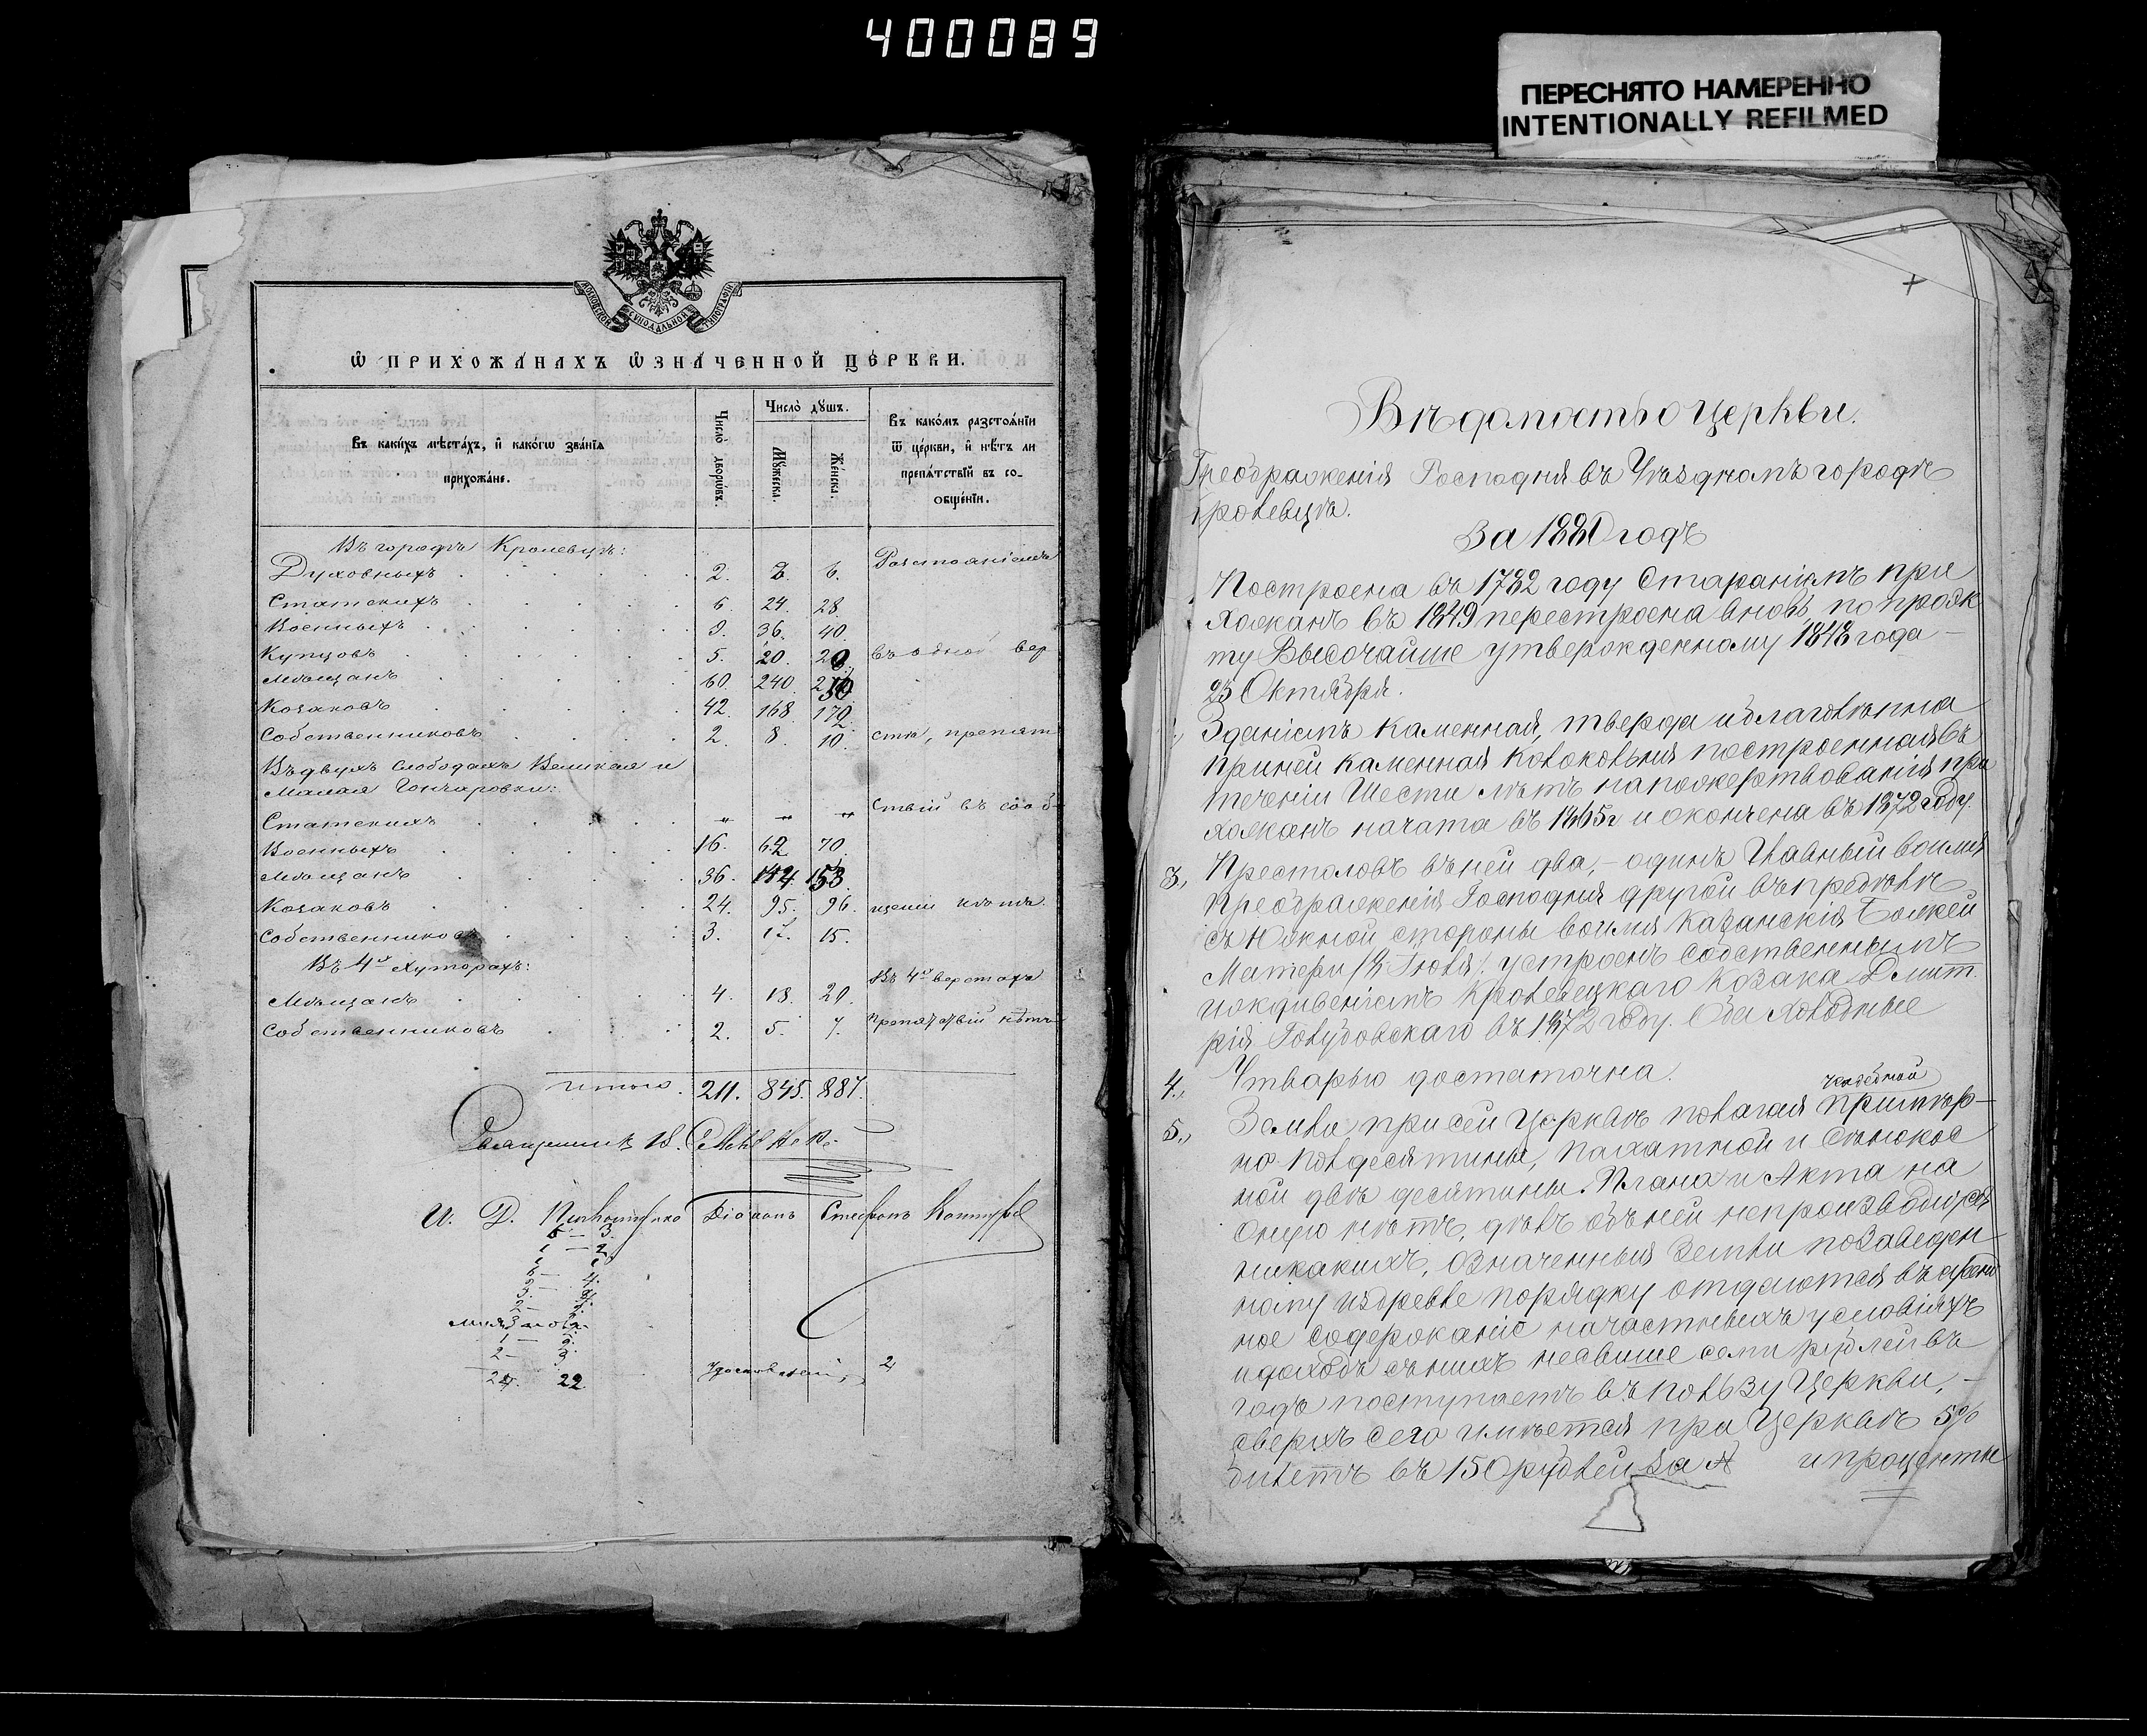 400089
ПЕРЕСНЯТО НАМЕРЕННО
INTENTIONALLY REFILMED
МОСКОВСКОЙ СѴНОДАЛЬНОЙ ТИПОГРАФІИ
Ѡ ПРИХОЖАНАХЪ ѠЗНАЧЕННОЙ ЦЕРКВИ.
Въ какихъ мѣстахъ, и какогѡ званїѧ
прихожане.
Число дворѡвъ.
Число душъ.
Мужеска.
Женска.
Въ какомъ разстоѧнїи
ѿ церкви, и нѣтъ ли
препѧтствїй въ со-
общенїи.
Въ городѣ Кролевцѣ:
Духовныхъ 2. 6. Разстояніемъ
Статскихъ 6. 24. 28
Военныхъ 9. 36. 40.
Купцовъ 5. 20. 20 въ одной вер
Мѣщанъ 60. 240.
Козаковъ 42. 168 170
Собственниковъ 2. 8. 10. стѣ, препят
Въ двухъ слободахъ Великая и
Малая Гончаровки:
Статскихъ „ „ „ ствій въ сооб-
Военныхъ 16. 62 70.
Мѣщанъ 36. 144. 153.
Козаковъ 24. 95. 96. щеніи нѣтъ.
Собственниковъ 3. 12. 15.
Въ 4х хуторахъ:
Мѣщанъ 4. 18. 20. Въ 4х верстахъ
Собственниковъ 2. 5. 7. препятствій нѣтъ
Итого. 211. 845. 887.
Священникъ
И. Д. Діаконъ Стефанъ
24. 22
Вѣдомость о церкви.
Преображенія Господня въ Уѣздномъ городѣ
Кролевцѣ.
За 1880 годъ
Построена въ 1782 году Стараніемъ при
хожанъ въ 1849 перестроена вновь по проэк
ту Высочайше утвержденному 1848 года –
25 Октября.
Зданіемъ каменная, тверда и благолѣпна
при ней каменная колокольня построенная въ
теченіи Шести лѣтъ на пожертвованія при
хожанъ начата въ 1865г и окончена въ 1872 году.
3., Престоловъ въ ней два, – одинъ Главный во имя
Преображенія Господня другой въ предѣлѣ
съ Южной стороны во имя Казанскія Божіей
Матери /8 Іюля/. устроенъ собственнымъ
иждивеніемъ Кролевецкаго Козака Дмит.
рія Голубовскаго въ 1872 году. Оба Холодные
4., Утварью достаточна.
5., Земли при сей Церквѣ полагая усадебной примѣр-
но полдесятины, пахатной и сѣнокос
ной двѣ десятины. Плана и Акта на
оную нѣтъ, дѣлъ объ ней непроизводится
никакихъ, означенныя земли по заведен
ному издревле порядку отдаются въ аренд
ное содержаніе на частныхъ условіяхъ
и доходъ съ нихъ несвыше семи рублей въ
годъ поступаетъ въ пользу Церкви, –
сверхъ сего имѣется при Церквѣ 5%
билетъ въ 150 рублей за № и проценты